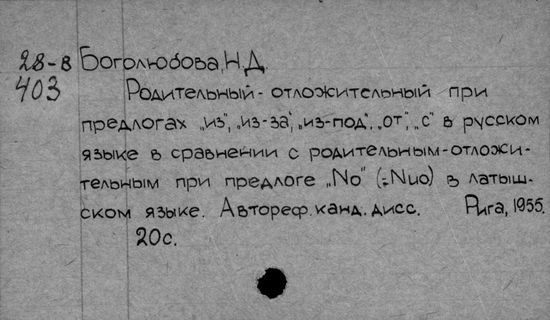 28-в Боголюбова, Н.Д.
403 Родительный-отложительный при
предлогах „из", „из-за", „из-под", „от", „с" в русском
языке в сравнении с родительным-отложи-
тельным при предлоге „No" (=Nuo) в латыш-
ском языке. Автореф. канд. дисс. Рига, 1955.
20с.